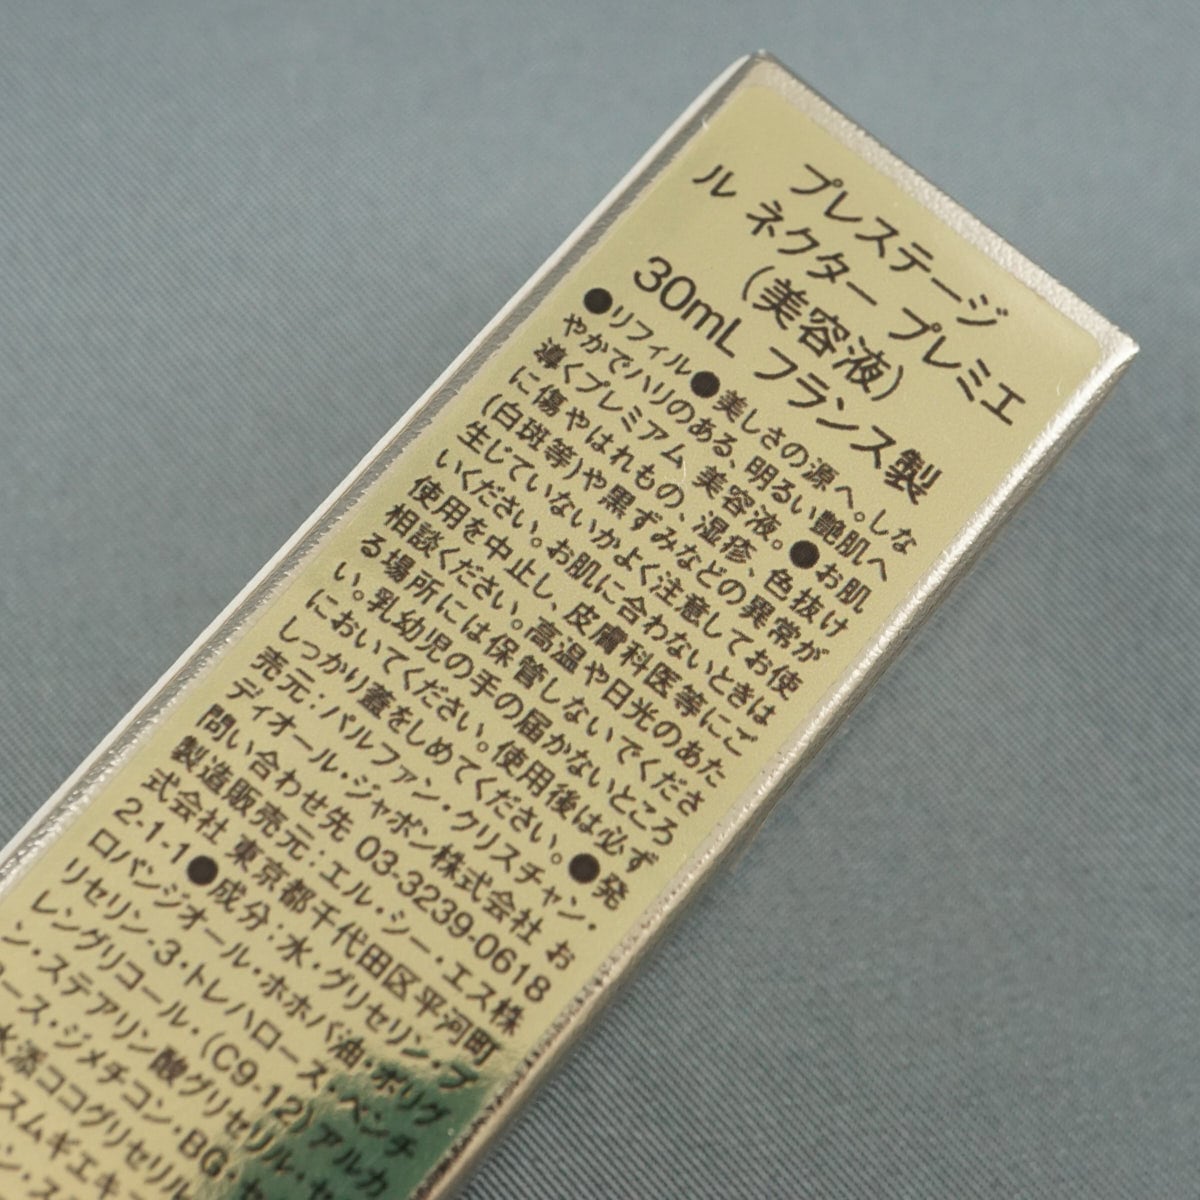 プレステージ
ル ネクター プレミエ
(美容液)
30mL フランス製
●リフィル●美しさの源へ。しな
やかでハリのある、明るい艶肌へ
導くプレミアム 美容液。●お肌
に傷やはれもの、湿疹、色抜け
(白斑等)や黒ずみなどの異常が
生じていないかよく注意してお使
いください。お肌に合わないときは
使用を中止し、皮膚科医等にご
相談ください。高温や日光のあた
る場所には保管しないでくださ
い。乳幼児の手の届かないところ
においてください。使用後は必ず
しっかり蓋をしめてください。●発
売元：パルファン・クリスチャン・
ディオール・ジャポン株式会社 お
問い合わせ先 03-3239-0618
製造販売元：エル・シー・エス株
式会社 東京都千代田区平河町
2-1-1●成分：水・グリセリン・プ
ロパンジオール・ホホバ油・ポリグ
リセリン-3・トレハロース・ペンチ
レングリコール・(C9-12)アルカ
ン・ステアリン酸グリセリル・セ
ース・ジメチコン・BG・セ
水添ココグリセリル
スムギエキ